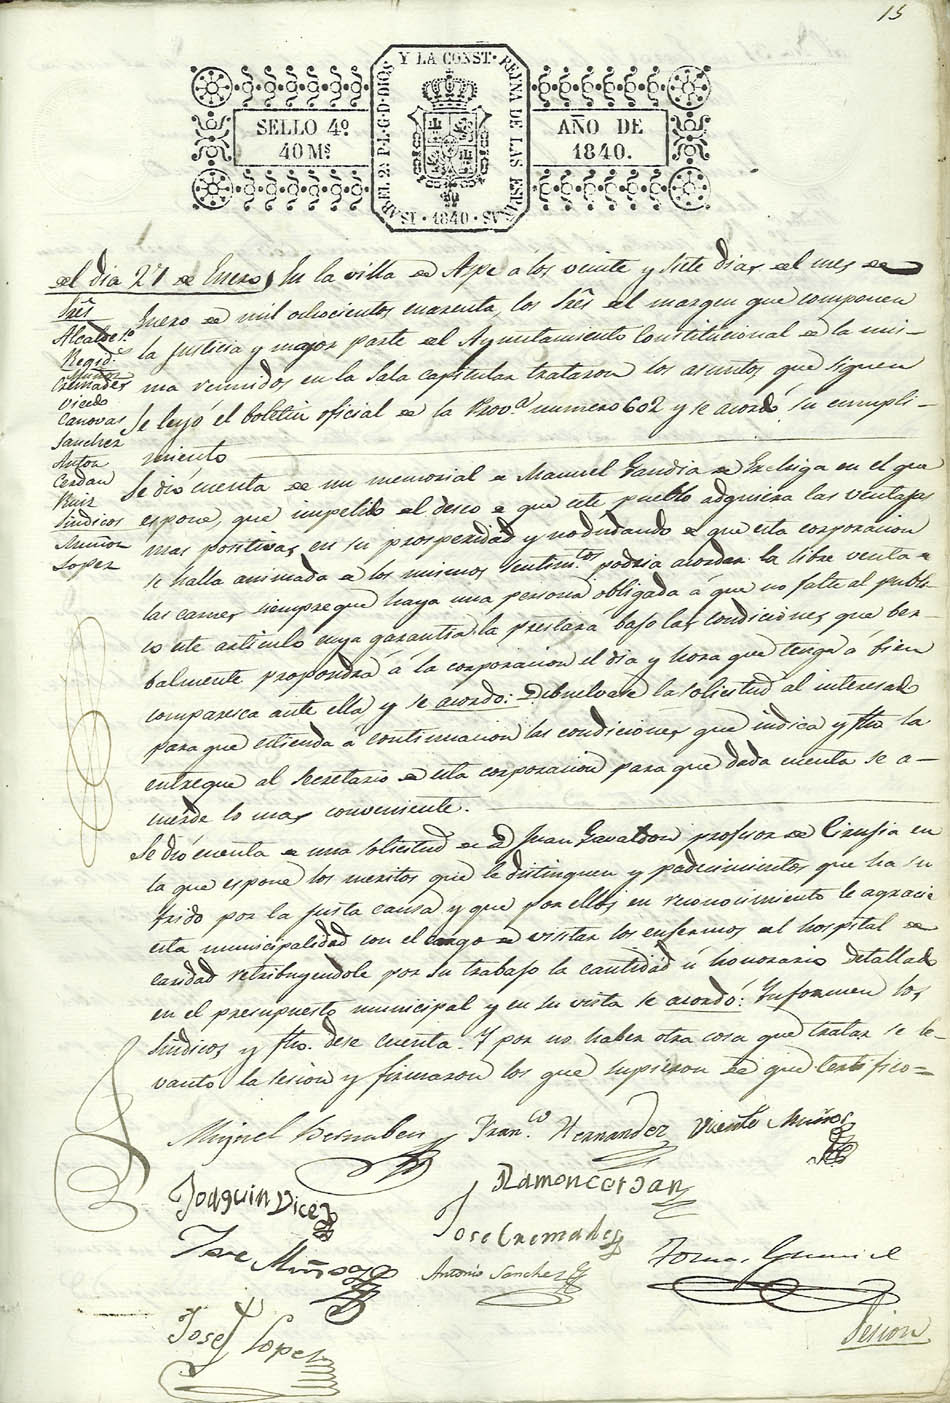 15
ISABEL 2ª P.L.G.D.DIOS Y LA CONST. REYNA DE LAS ESPAÑAS
1840
SELLO 4º
40 Mˢ
AÑO DE
1840.
del dia 27 de Enero, En la villa de Aspe á los veinte y siete dias del mes de
Enero de mil ochocientos cuarenta, los Sres del margen que componen
la Justicia y mayor parte del Ayuntamiento Constitucional de la mis-
ma reunidos en la Sala Capitular trataron los asuntos que siguen
Se leyo el boletin oficial de la Provª numero 602 y se acordó su cumpli-
miento
Sres
Alcalde 1º
Regid.s
Muñoz
Cremades
Vicedo
Canovas
Sanchez
Anton
Cerdan
Ruiz
Sindicos
Muñoz
Lopez
Se dió cuenta de un memorial de Manuel Gandia de Elchiga en el que
espone, que impelido del deseo de que este pueblo adquiera las ventajas
mas positivas en su prosperidad y no dudando de que esta corporacion
se halla animada de los mismos sentim.tos podria acordar la libre venta de
las carnes siempre que haya una persona obligada á que no falte al publi-
co este articulo cuya garantia la prestará bajo las condiciones que ber-
balmente propondrá á la corporacion el dia y hora que tenga á bien
comparesca ante ella y se acordó: Debuelvase la solicitud al interesado
para que estienda a continuacion las condiciones que indica y fho la
entregue al Secretario de esta corporacion para que dada cuenta se a-
cuerde lo mas conveniente.
Se dió cuenta de una solicitud de D Juan Gavaldon profesor de Cirujia en
la que espone los meritos que le distinguen y padecimientos que ha su
frido por la justa causa y que por ellos en reconocimiento le agracie
esta municipalidad con el cargo de visitar los enfermos del hospital de
caridad retribuyendole por su trabajo la cantidad ú honorario detallado
en el presupuesto municipal y en su vista se acordó: Informen los
Sindicos y fho. dese cuenta. Y por no haber otra cosa que tratar se le-
vantó la sesion y firmaron los que supieron de que certifico=
Miguel Bernabeu Fran.co Hernandez Vicente Muñoz
Joaquin Vicedo Ramon Cerdan
Jose Cremades
Jose Muñoz Antonio Sanchez Tomas
Jose Lopez
Sesion